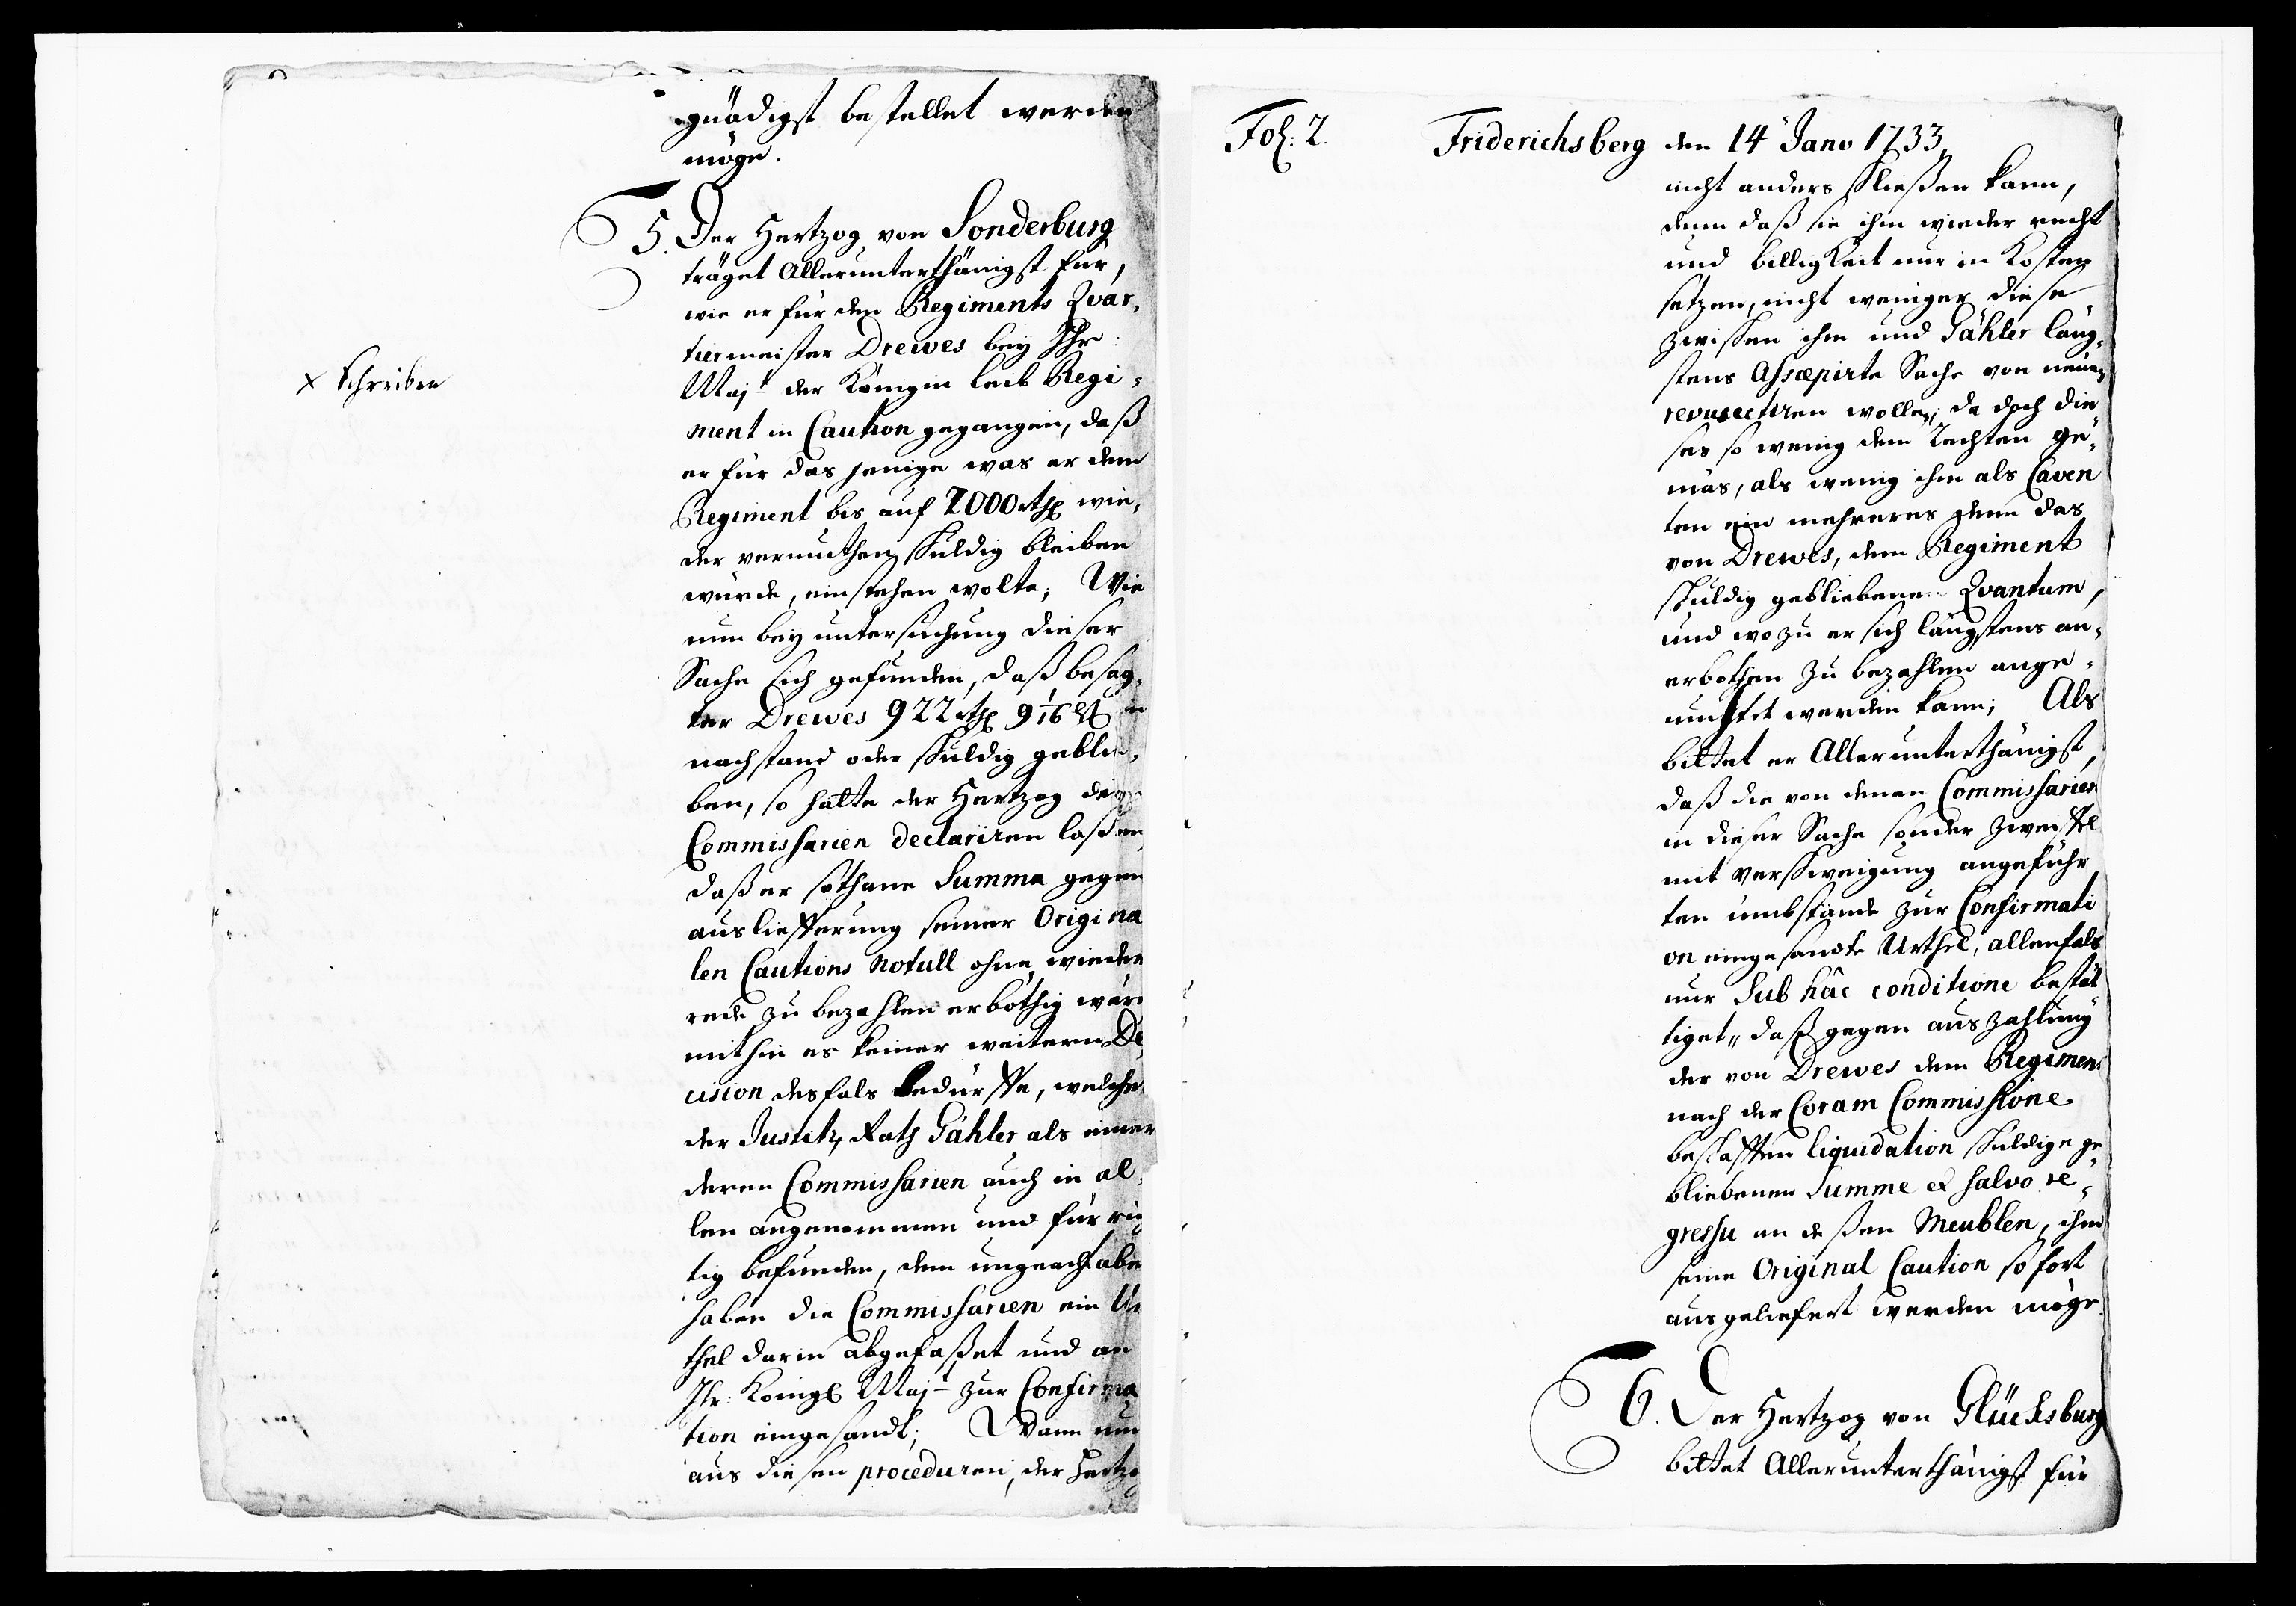 gnädigst bestellet werden
möge.
5. Der Hertzog von Sonderburg
träget Allerunterthänigst für,
wie er für den Regiments Qvar,
tiermeister Drewes bey Ihr:
x Schreiben
Maj^t der Königin leib Regi-
ment in Caution gegangen, daß
er für das jenige was er dem
Regiment bis auf 2000 rthl wie,
der vermuthen schuldig bleiben
würde, einstehen wolte; Wie
nun bey untersuchung dieser
Sache sich gefunden, daß besag,
ter Drewes 922 rthl 9 1/16 ß in
nachstand oder schuldig geblie,
ben, so hatte der Hertzog denen
Commissarien declariren laßen
daß er sothane Summa gegen
auslieferung seiner Origina
len Cautions Notull ohne wieder
rede zu bezahlen erböthig wäre
mithin es keiner weitern De,
cision desfals bedürffe, welches
der Justitz Rath Gähler als einer
deren Commissarien auch in al,
len angenommen und für rich
tig befunden, dem ungeacht aber
haben die Commissarien ein Ur
thel darin abgefaßet und an
Ihr: Königl Maj^t zur Confirma
tion eingesandt; Wann nun
aus diesen proceduren, der Hertzog
Fol: 2. Friderichsberg den 14 Janv 1733.
nicht anders schließen kann,
denn daß sie ihn wieder recht
und billigkeit nur in Kosten
setzen, nicht weniger diese
zwischen ihm und Gähler läng,
stens Assopirte Sache von neuen
resusciren wollen, da doch die
ses so wenig dem Rechten ge,
mäs, als wenig ihm als Caven
ten ein mehreres denn das
von Drewes, dem Regiment
schuldig gebliebene Qvantum,
und wozu er sich längstens an,
erbothen zu bezahlen ange,
muhtet werden kann; Als
bittet er Allerunterthänigst,
daß die von denen Commissarien
in dieser Sache sonder zweiffel
mit verschweigung angeführ
ten umbstände zur Confirmati
on eingesandte Urthel, allenfals
nur Sub hâc conditione bestät
tiget,, daß gegen auszahlung
der von Drewes dem Regiment
nach der Coram Commissione
beschafften liquidation schuldige ge,
bliebenen Summe et salvo re,
gressu an deßen Meublen, ihm
seine Original Caution sofort
ausgeliefert werden möge.
6. Der Hertzog von Glücksburg
bittet Allerunterthänigst für